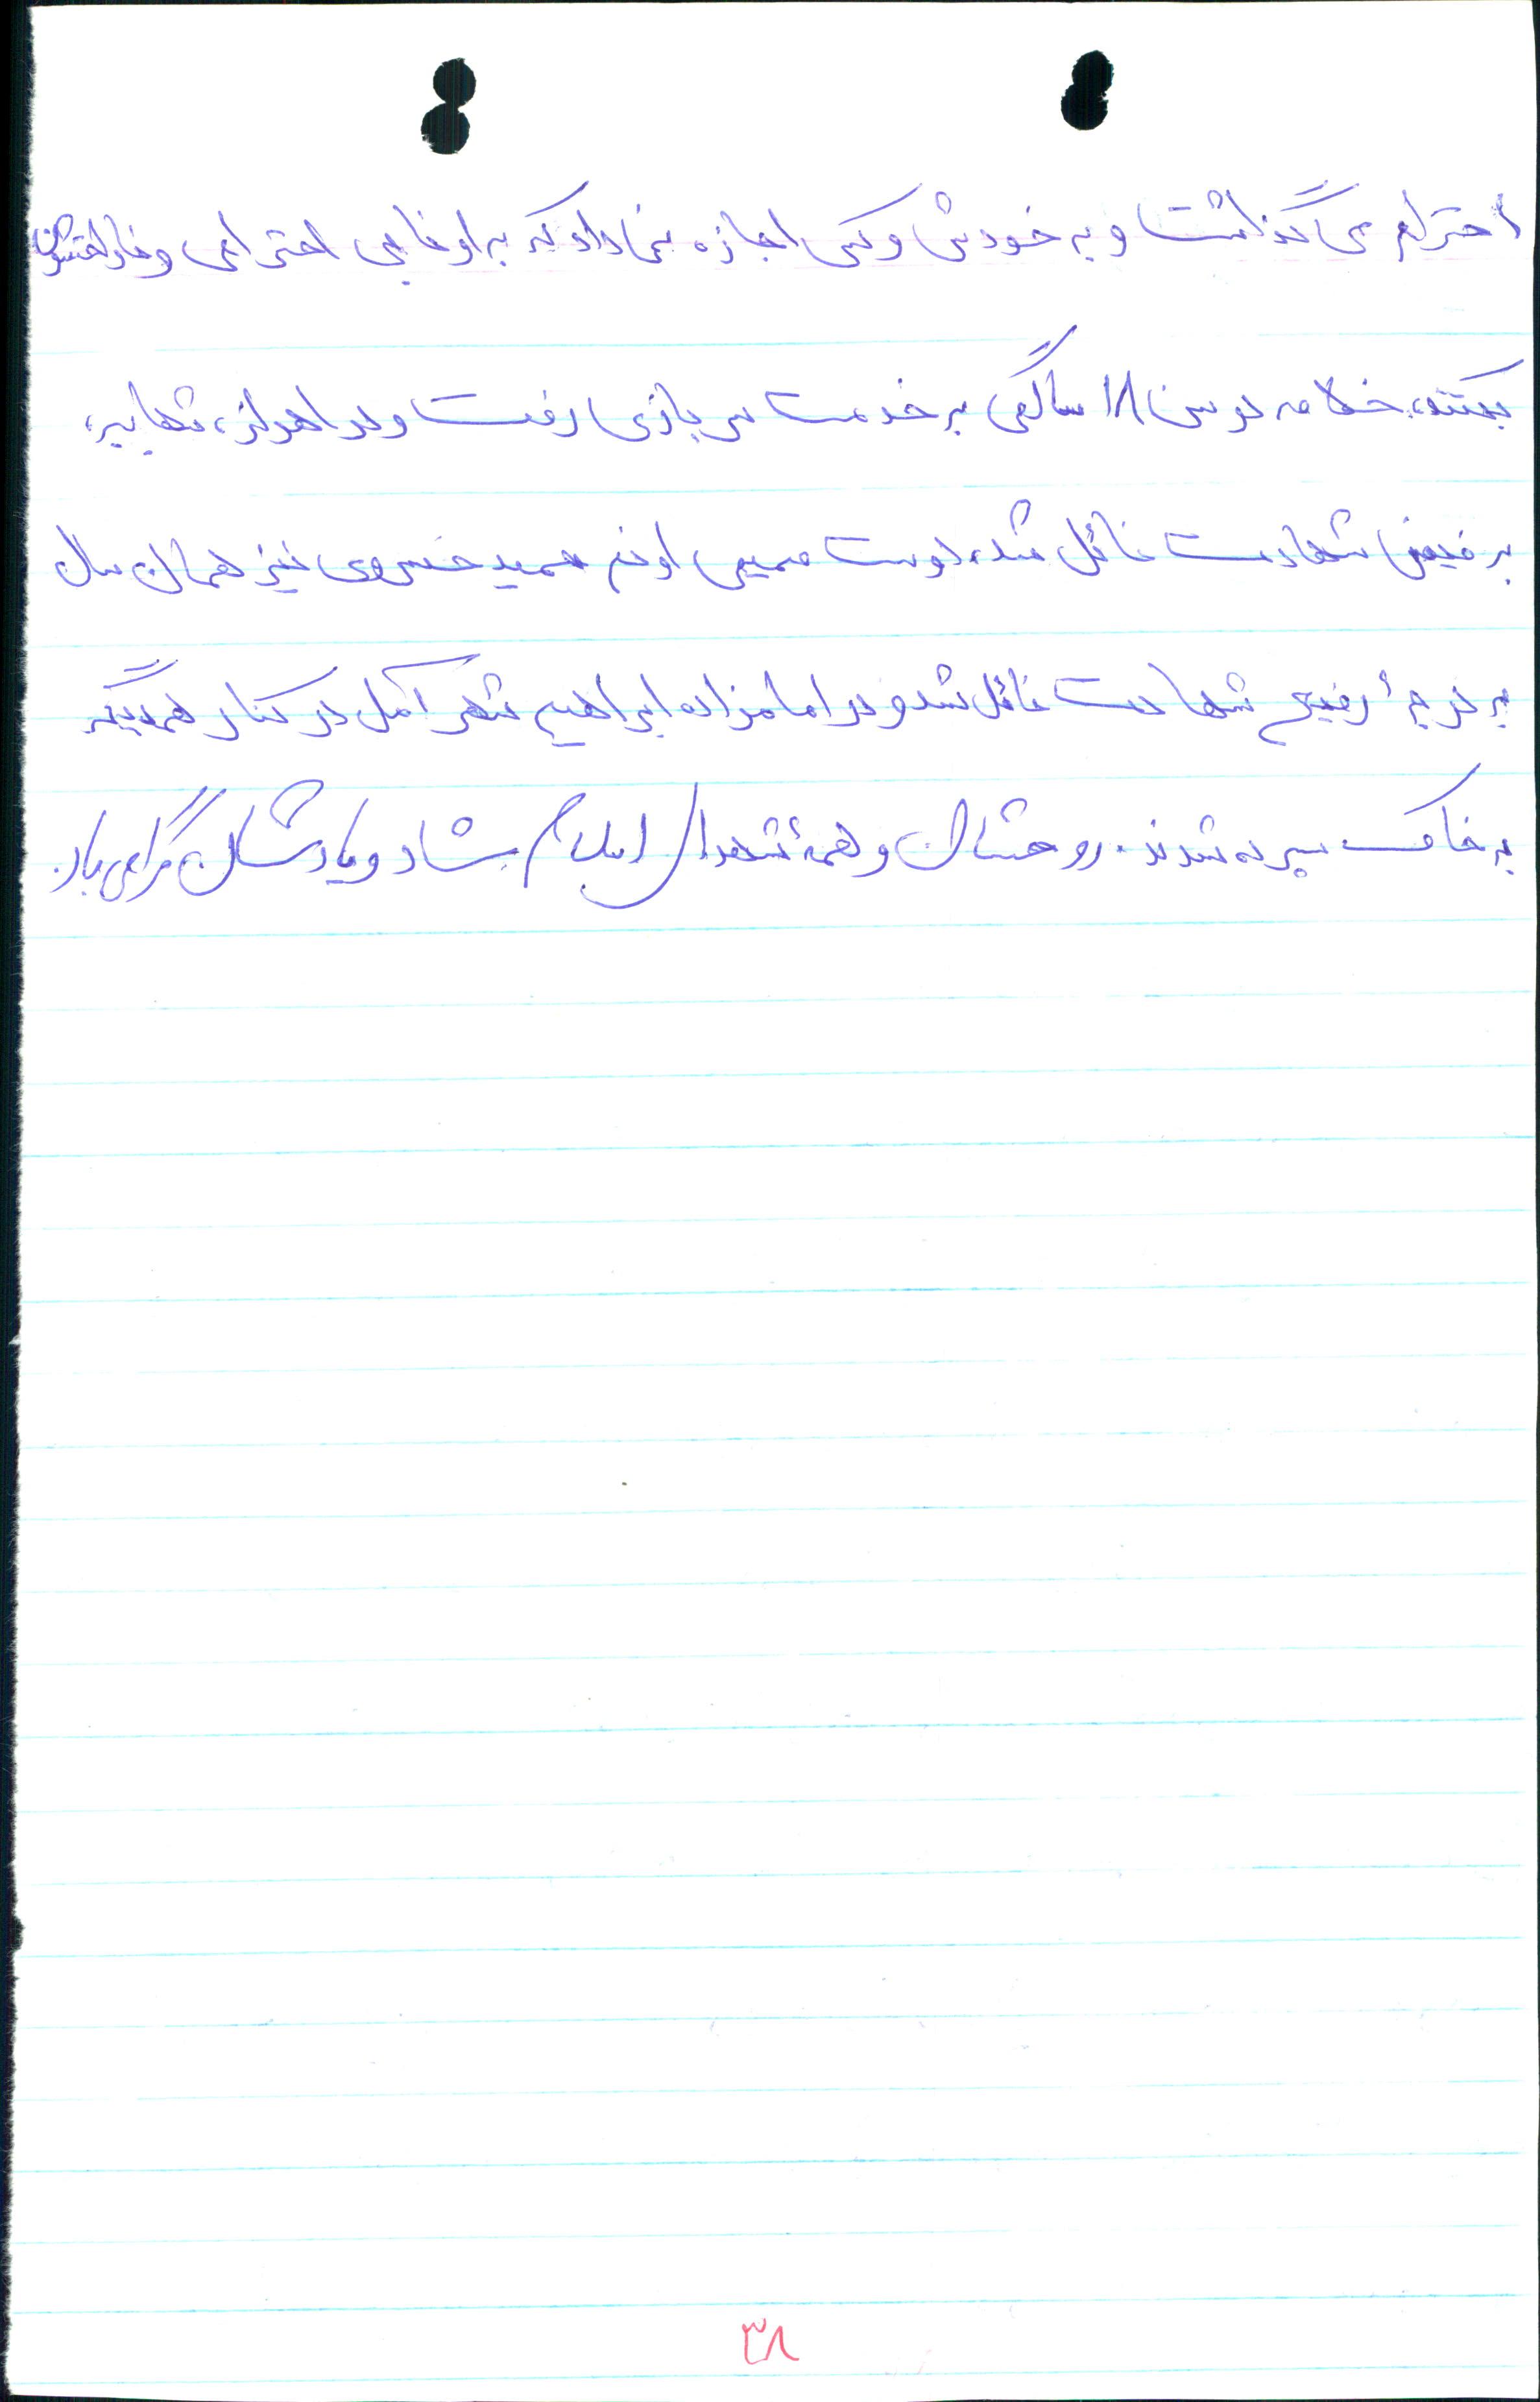 احترام می گذاشت و به خودش و کسی اجازه نمی داد که به اوشان بی احترامی و خارلفتشون
بکنند، خلاصه در سن ۱۸ سالگی به خدمت سربازی رفت و در اهواز،
به فیض شهادت نائل شد، دوست صمیمی اونم حمید خسروی نیز همان سال
به درجهٔ رفیع شهادت نائل شد و در امامزاده ابراهیم شهر آمل در کنار همدیگر
به خاک سپرده شدند. روحشان و همهٔ شهدای اسلام شاد و یادشان گرامی باد.
۳۸